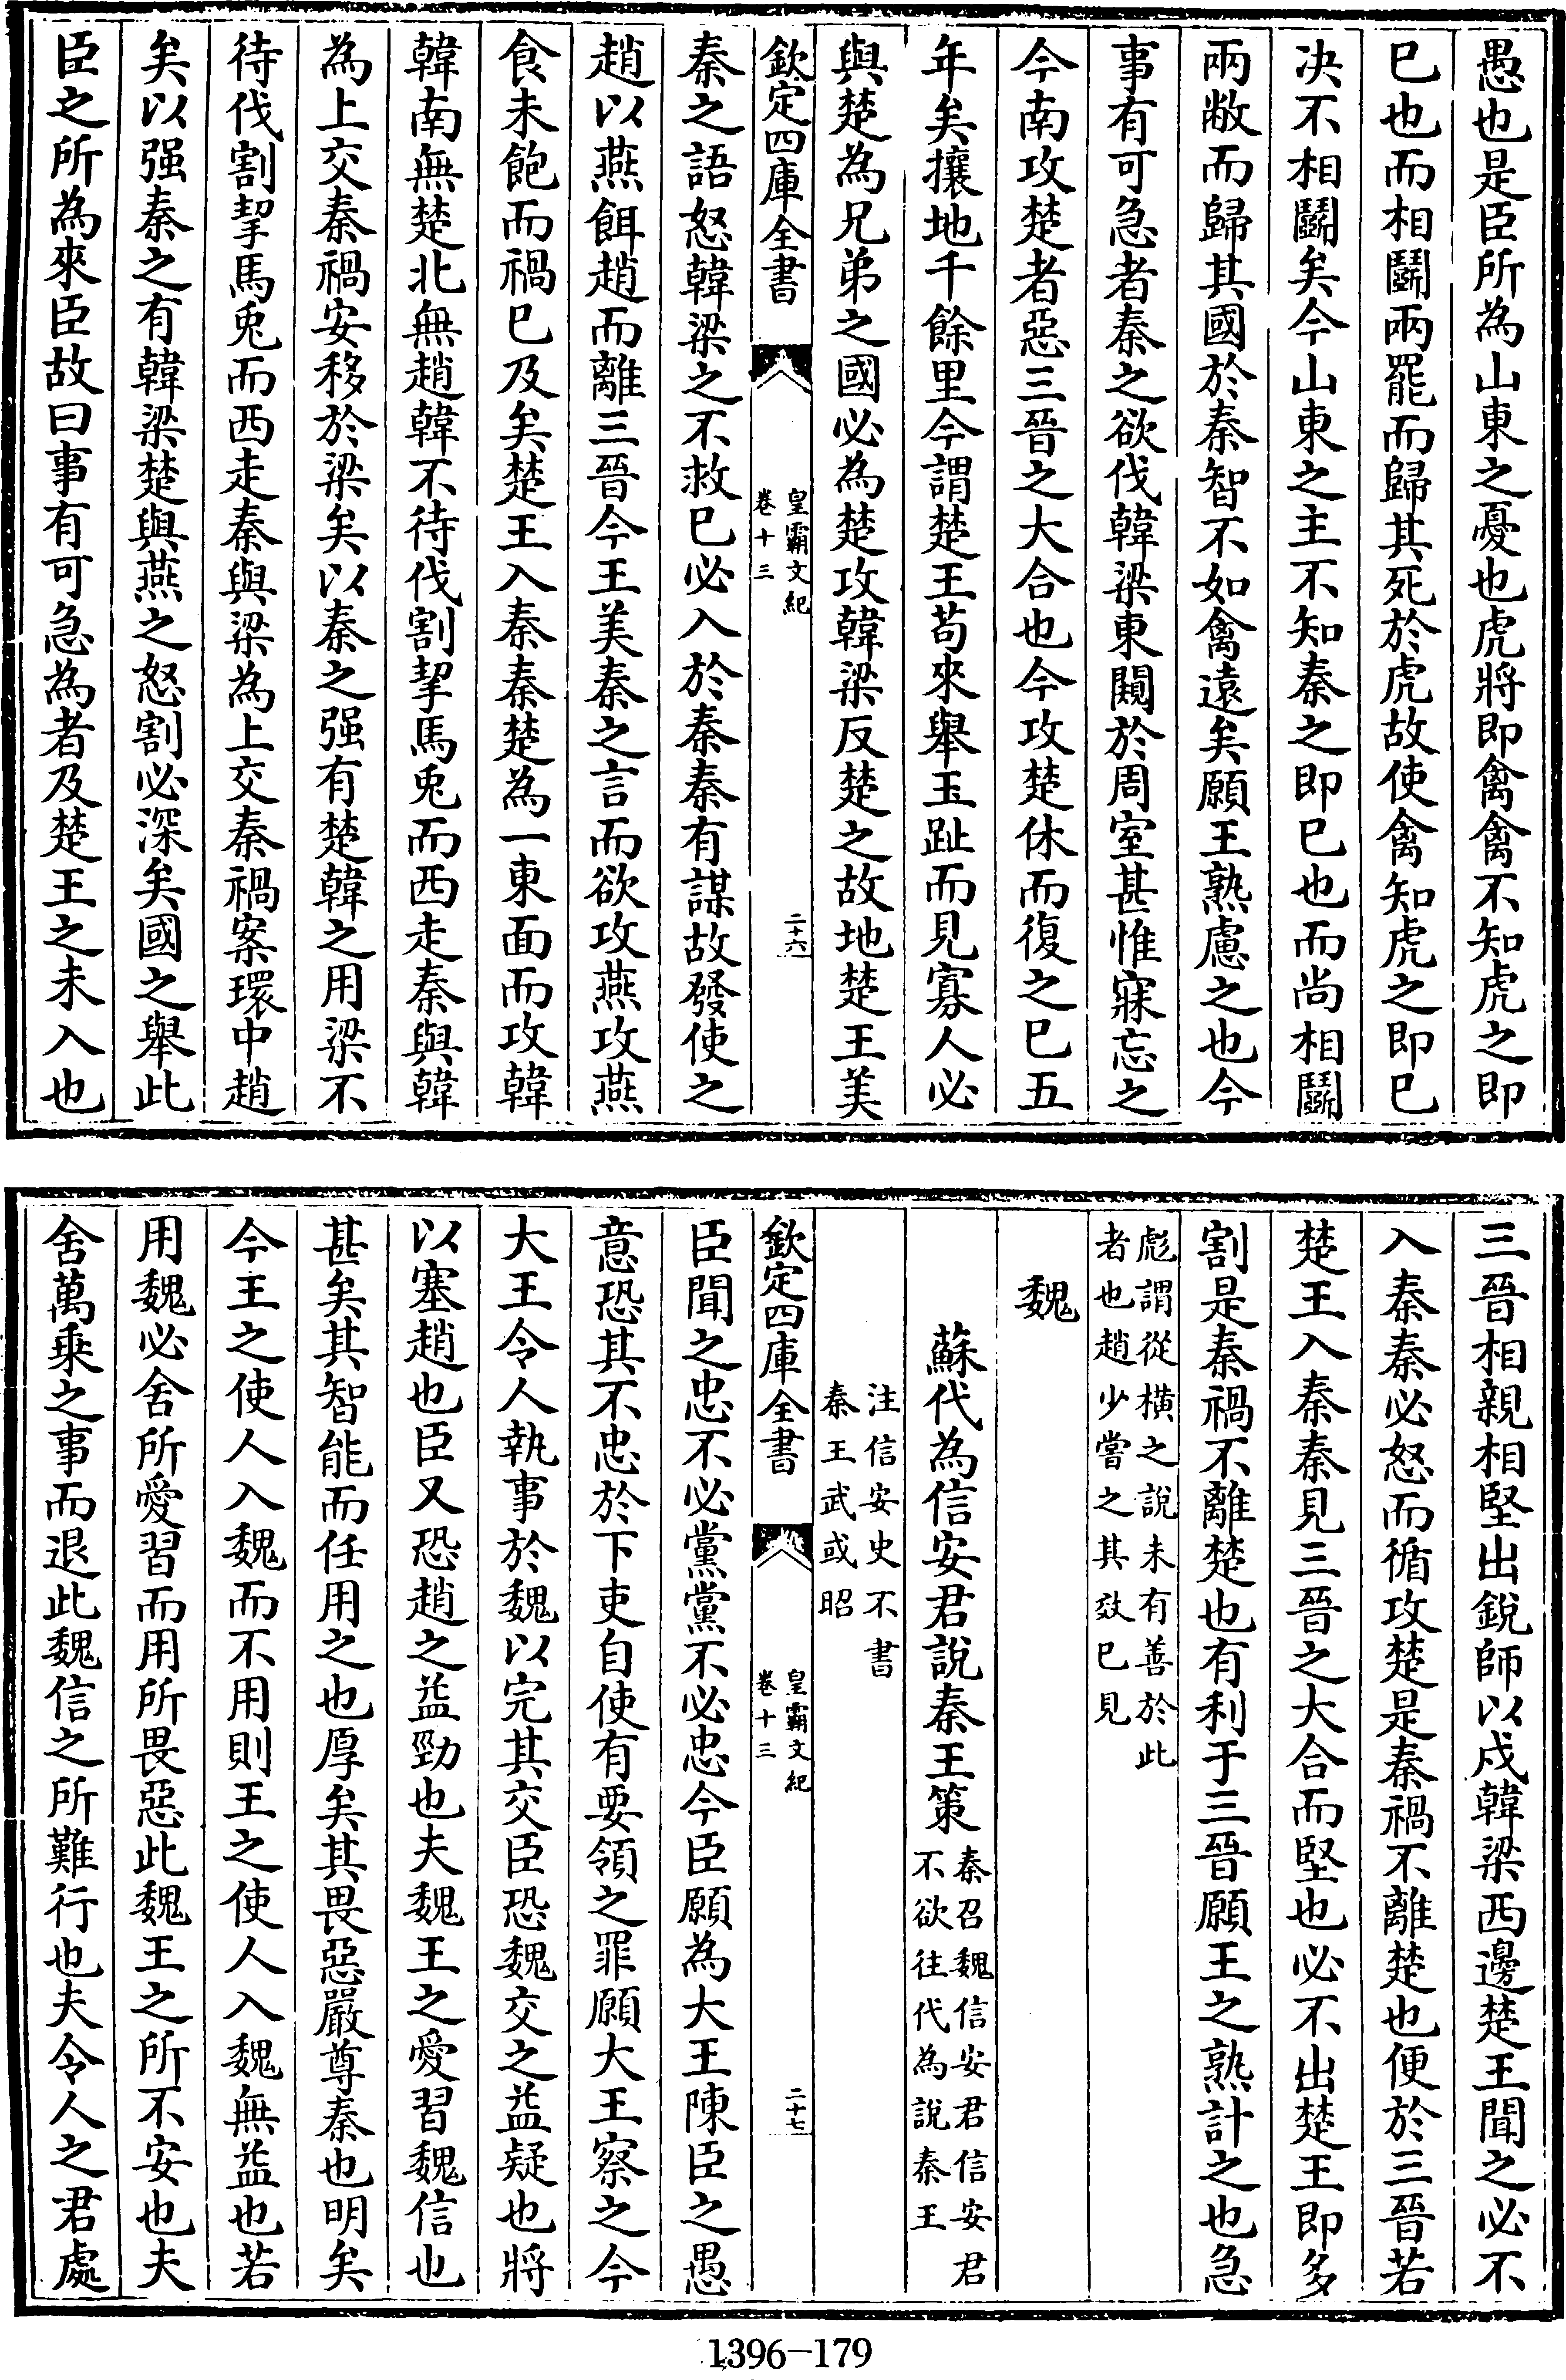 愚也是臣所為山東之憂也虎將即禽禽不知虎之即
已也而相鬭兩罷而歸其死於虎故使禽知虎之即已
决不相鬭矣今山東之主不知秦之即已也而尚相鬭
兩敝而歸其國於秦智不如禽遠矣願王熟慮之也今
事有可急者秦之欲伐韓梁東闚於周室甚惟寐忘之
今南攻楚者惡三晉之大合也今攻楚休而復之已五
年矣攘地千餘里今謂楚王苟來舉玉趾而見寡人必
與楚為兄弟之國必為楚攻韓梁反楚之故地楚王美
欽定四庫全書 皇霸文紀 卷十三 二十六
秦之語怒韓梁之不救已必入於秦秦有謀故發使之
趙以燕餌趙而離三晉今王美秦之言而欲攻燕攻燕
食未飽而禍已及矣楚王入秦秦楚為一東面而攻韓
韓南無楚北無趙韓不待伐割挈馬兎而西走秦與韓
為上交秦禍安移於梁矣以秦之强有楚韓之用梁不
待伐割挈馬兎而西走秦與梁為上交秦禍案環中趙
矣以强秦之有韓梁楚與燕之怒割必深矣國之舉此
臣之所為來臣故曰事有可急為者及楚王之未入也
三晉相親相堅出銳師以戍韓梁西邊楚王聞之必不
入秦秦必怒而循攻楚是秦禍不離楚也便於三晉若
楚王入秦秦見三晉之大合而堅也必不出楚王即多
割是秦禍不離楚也有利于三晉願王之熟計之也急
彪謂從横之說未有善於此
者也趙少嘗之其效已見
魏
蘇代為信安君說秦王策 秦召魏信安君信安君
不欲往代為說秦王
注信安史不書
秦王武或昭
欽定四庫全書 皇霸文紀 卷十三 二十七
臣聞之忠不必黨黨不必忠今臣願為大王陳臣之愚
意恐其不忠於下吏自使有要領之罪願大王察之今
大王令人執事於魏以完其交臣恐魏交之益疑也將
以塞趙也臣又恐趙之益勁也夫魏王之愛習魏信也
甚矣其智能而任用之也厚矣其畏惡嚴尊秦也明矣
今王之使人入魏而不用則王之使人入魏無益也若
用魏必舍所愛習而用所畏惡此魏王之所不安也夫
舍萬乘之事而退此魏信之所難行也夫令人之君處
1396-179